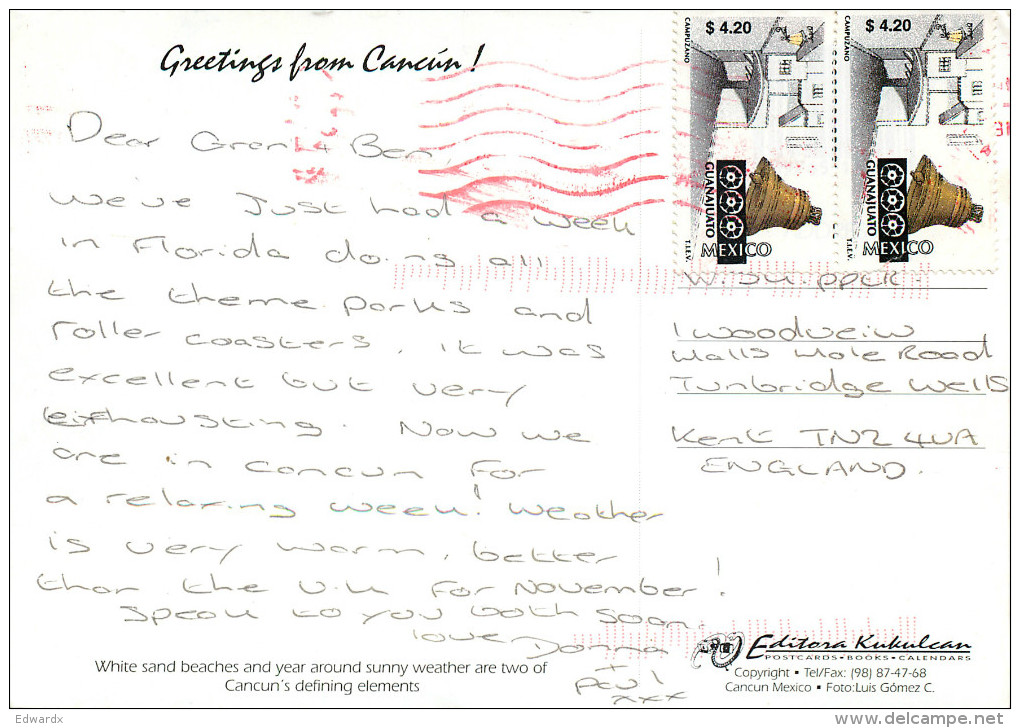 Greetings from Cancún!
Dear Gran & Ben
We've Just had a week
in Florida doing all
the theme parks and
roller coasters, it was
excellent but very
exhausting. Now we
are in Cancun for
a relaxing week! Weather
is very warm, better
than the U.K for November!
Speak to you both soon.
love Donna
+
Paul
xxx
White sand beaches and year around sunny weather are two of
Cancun's defining elements
$ 4.20
CAMPUZANO
GUANAJUATO
MEXICO
T.I.E.V.
$ 4.20
CAMPUZANO
GUANAJUATO
MEXICO
T.I.E.V.
1 Woodveiw
Halls Hole Road
Tunbridge Wells
Kent TN2 4UA
ENGLAND.
Editora Kukulcan
POSTCARDS • BOOKS • CALENDARS
Copyright • Tel/Fax: (98) 87-47-68
Cancun Mexico • Foto:Luis Gómez C.
Edwardx
delcampe.net